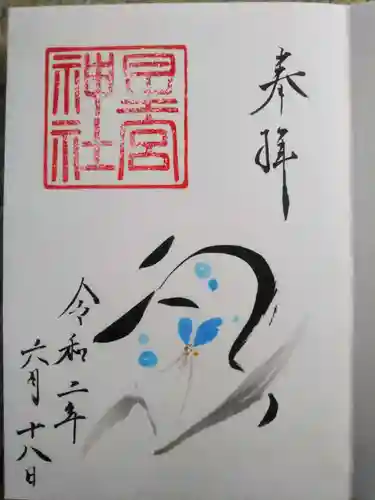 奉拝
星宮
神社
令和二年
六月十八日